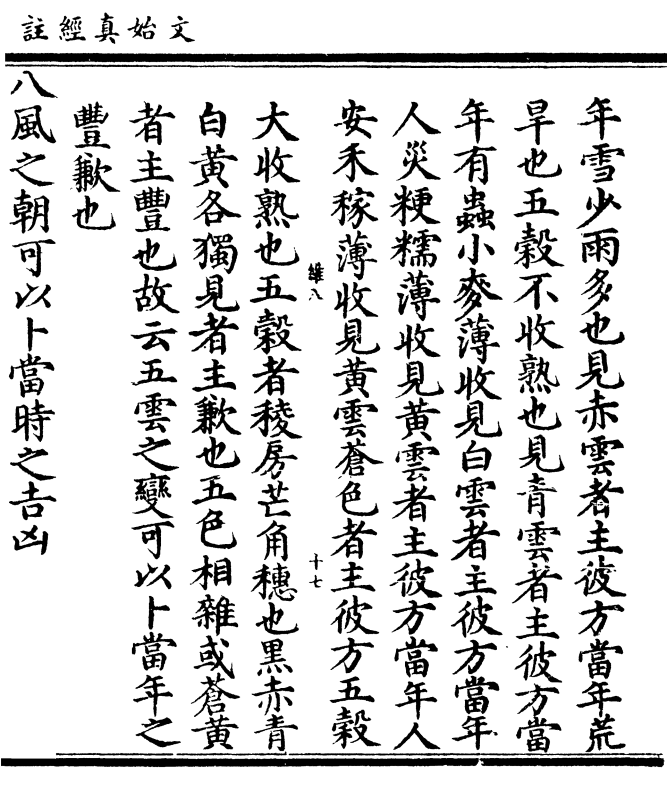 文始真經註
年雪少雨多也見赤雲者主彼方當年荒
旱也五穀不收熟也見青雲者主彼方當
年有蟲小麥薄收見白雲者主彼方當年
人災粳糯薄收見黃雲者主彼方當年人
安禾稼薄收見黃雲蒼色者主彼方五穀
維八
十七
大收熟也五穀者稜房芒角穗也黑赤青
白黃各獨見者主歉也五色相雜或蒼黃
者主豐也故云五雲之變可以卜當年之
豐歉也
八風之朝可以卜當時之吉凶